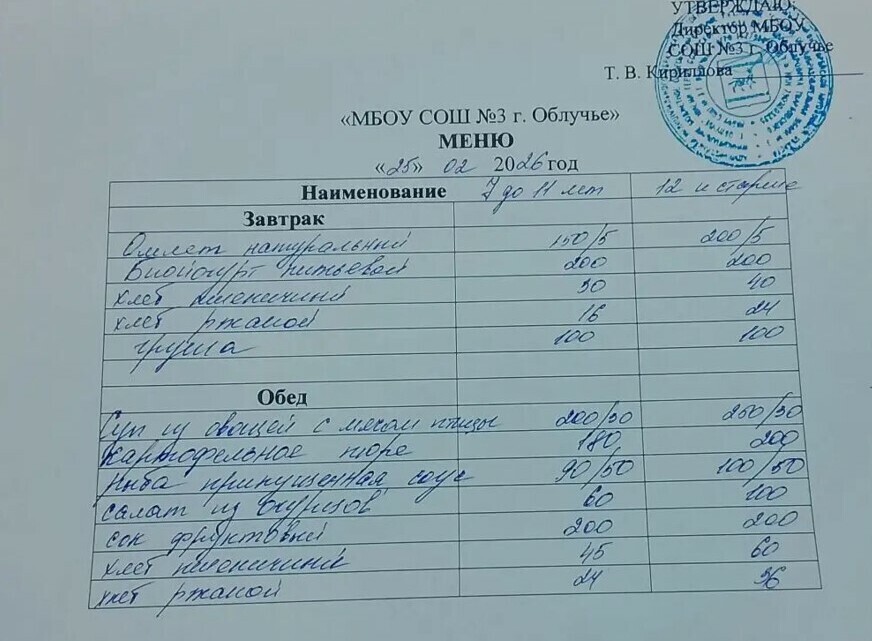 УТВЕРЖДАЮ:
Директор МБОУ
СОШ №3 г. Облучье
Т. В. Кириллова
«МБОУ СОШ №3 г. Облучье»
МЕНЮ
«25» 02 2026 год
Наименование 7 до 11 лет 12 и старше
Завтрак
Омлет натуральный 150/5 200/5
Биойогурт питьевой 200 200
хлеб пшеничный 30 40
хлеб ржаной 16 24
груша 100 100
Обед
Суп из овощей с мясом птицы 200/30 250/30
Картофельное пюре 180 200
Рыба припущенная соус 90/50 100/50
салат из огурцов 60 100
сок фруктовый 200 200
хлеб пшеничный 45 60
хлеб ржаной 24 36